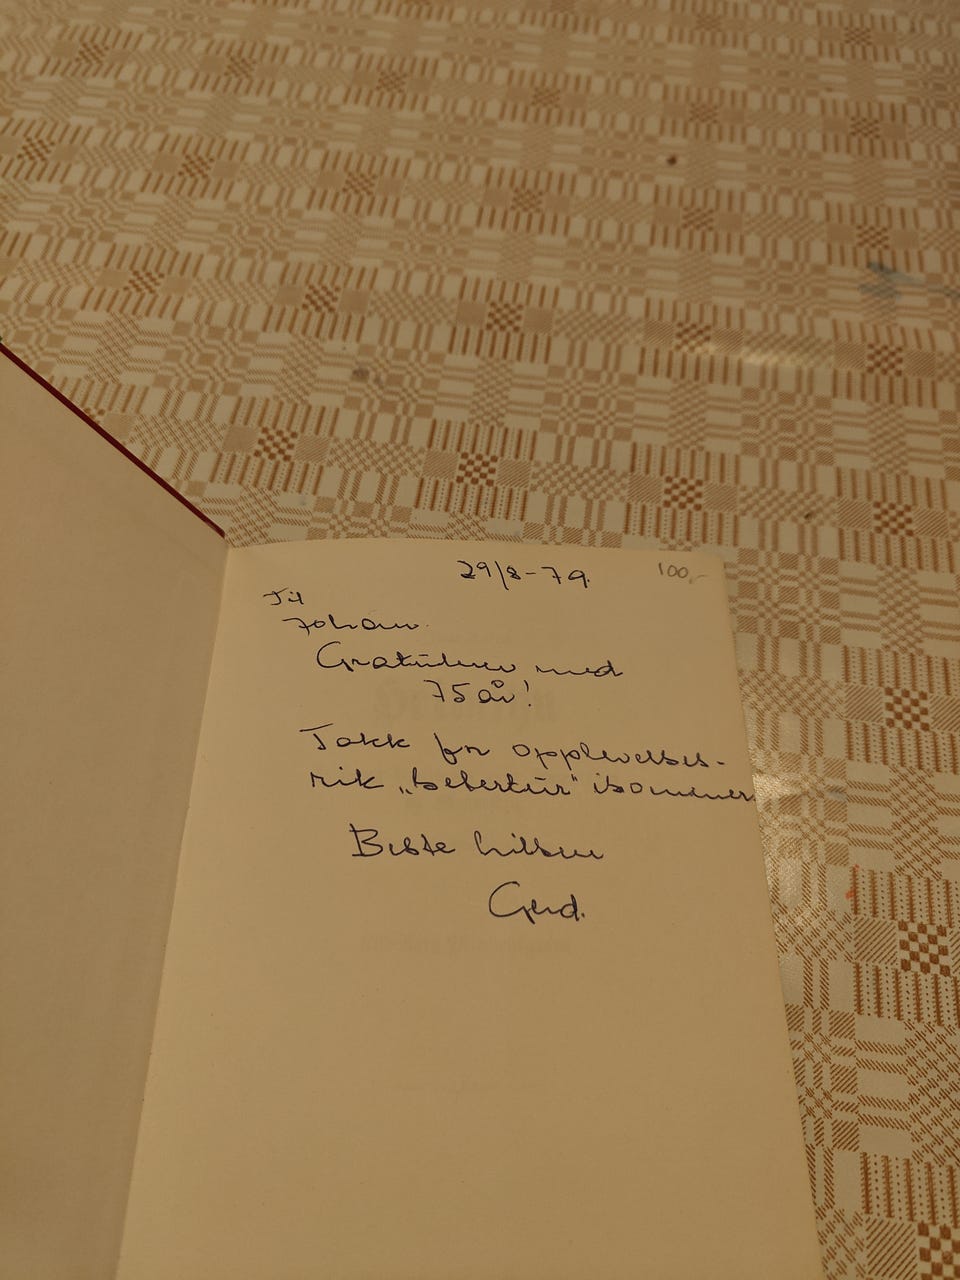 29/8-79.
100,-
Til
Johan.
Gratulerer med
75 år!
Takk for opplevelses-
rik „ isommer
Beste hilsen
Gerd.